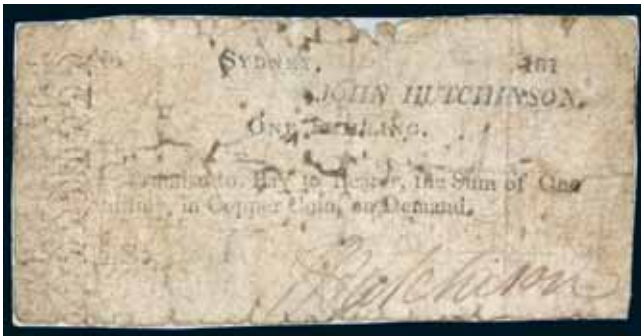 No. SYDNEY, 181
JOHN HUTCHINSON.
ONE SHILLING.
I Promise to Pay to Bearer, the Sum of One
Shilling, in Copper Coin, on Demand.
J Hutchinson